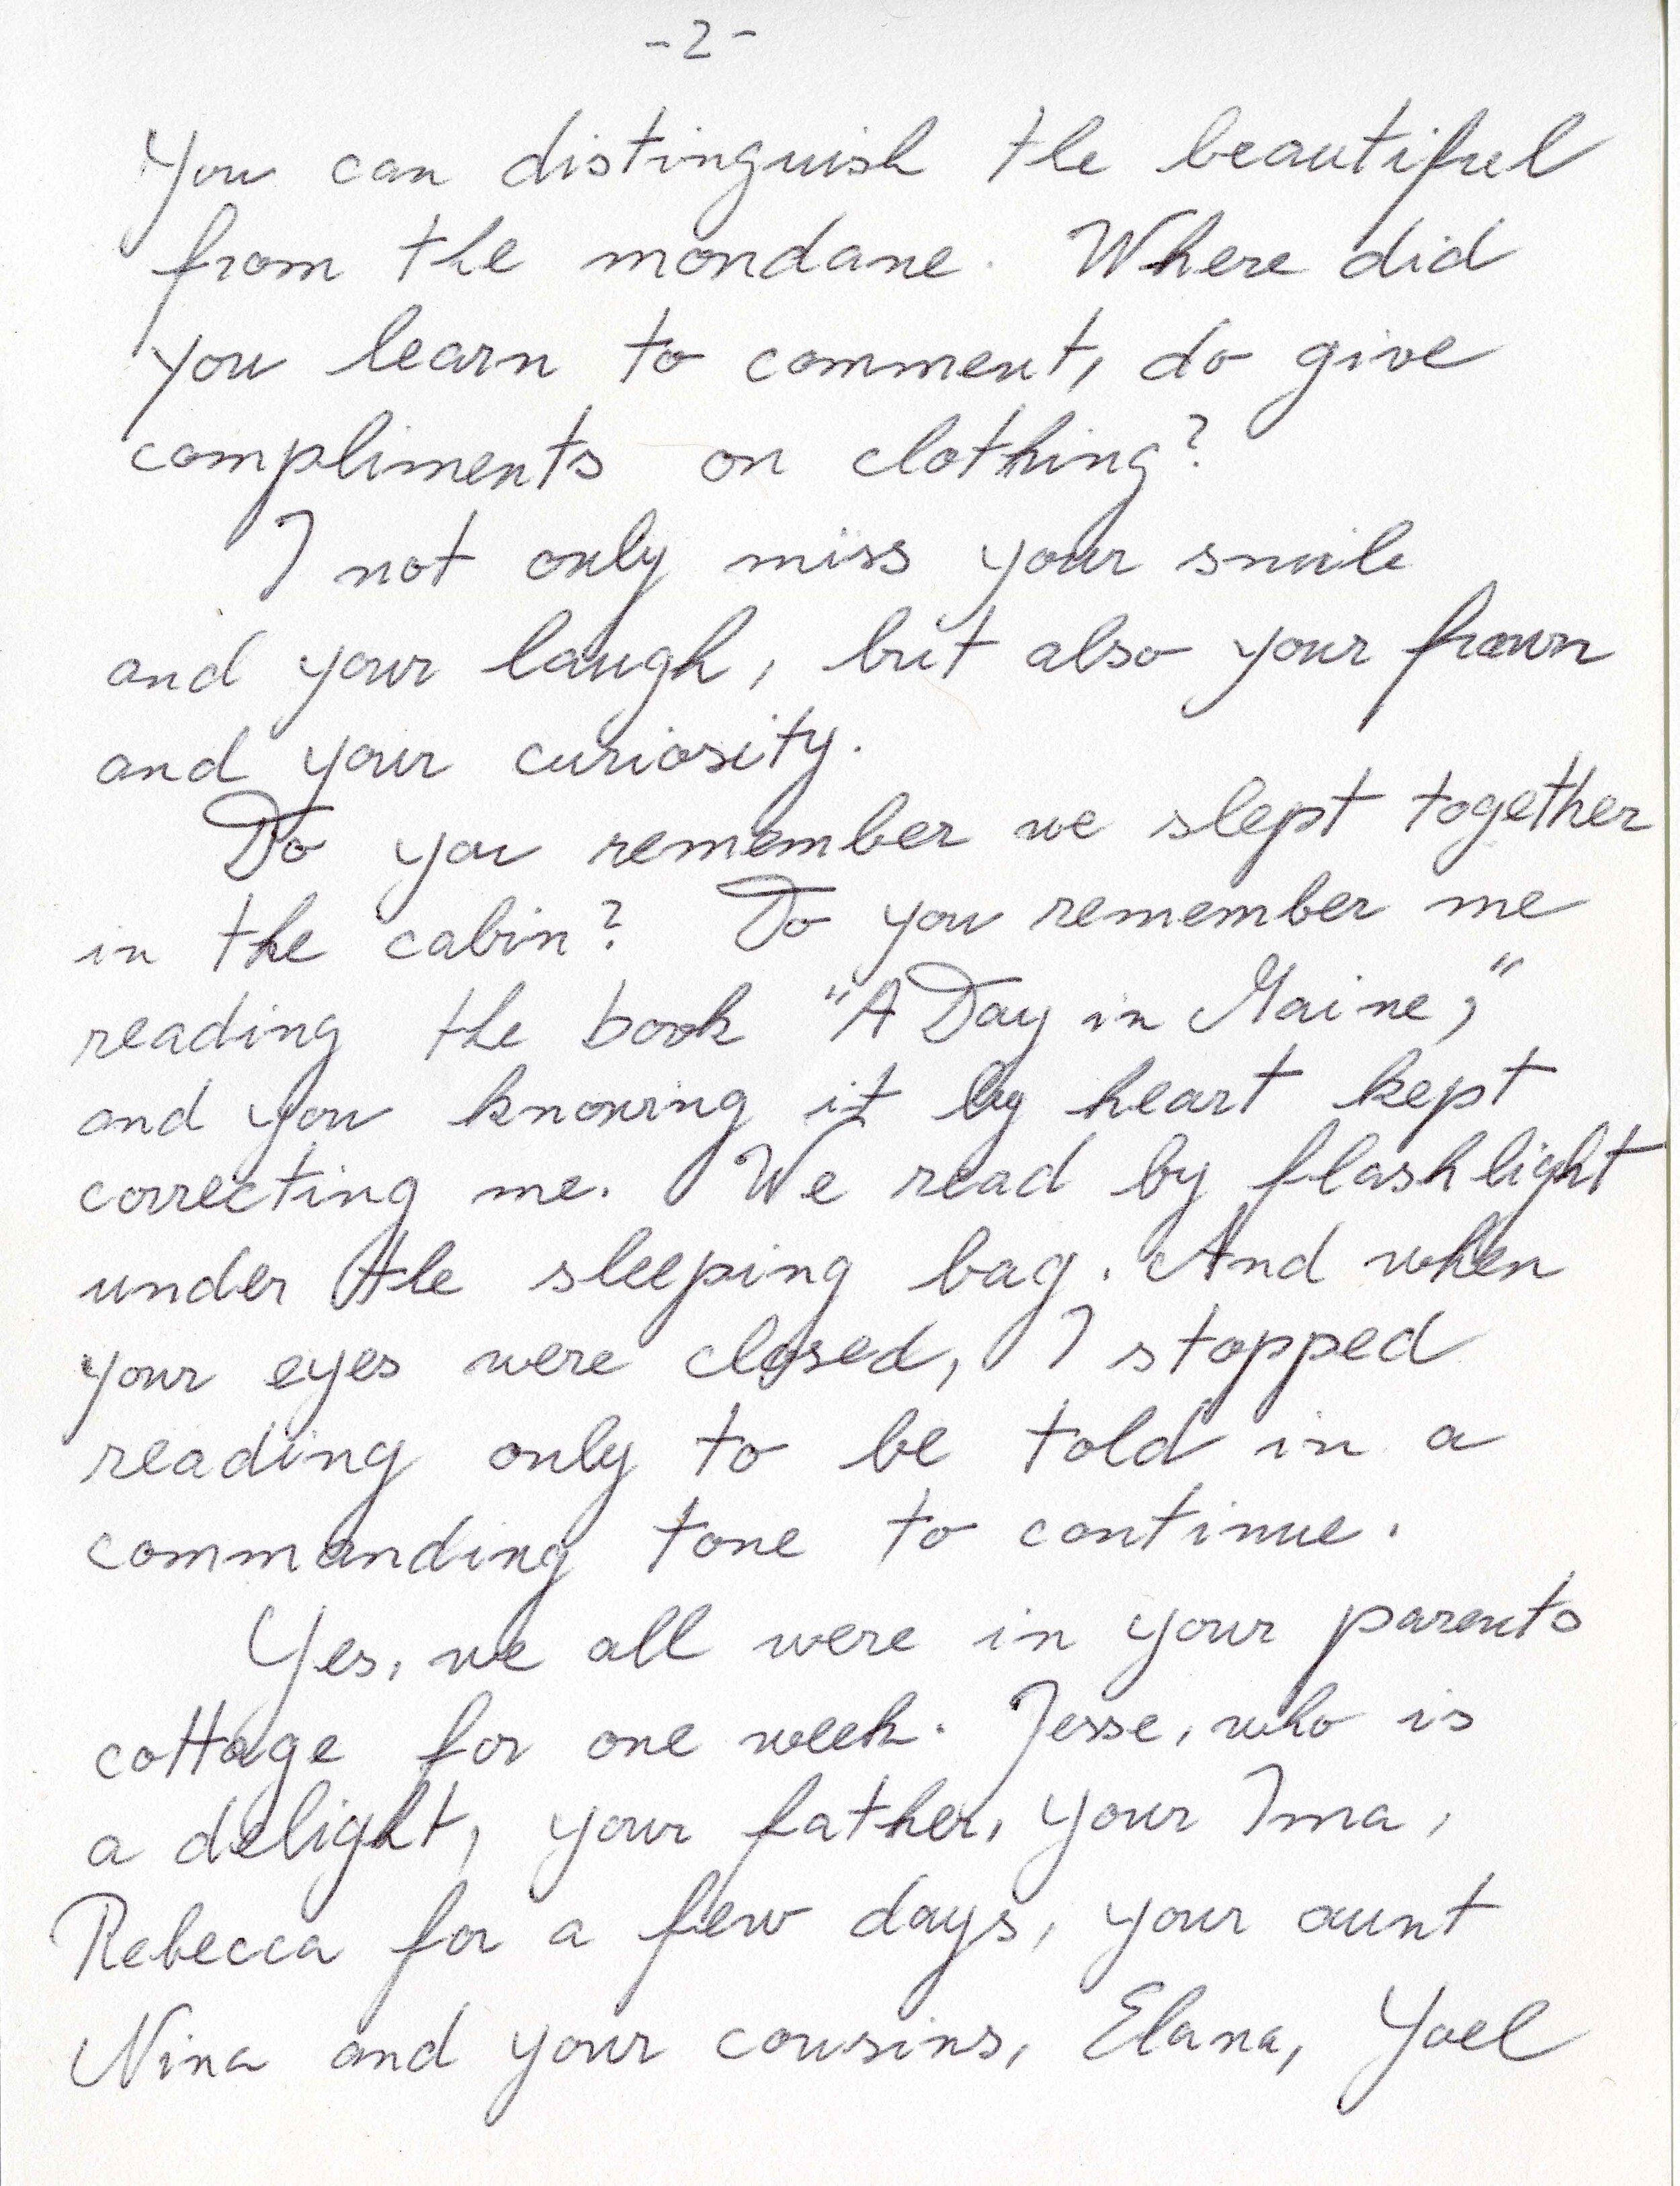 -2-
You can distinguish the beautiful
from the mondane. Where did
you learn to comment, do give
compliments on clothing?
I not only miss your smile
and your laugh, but also your frown
and your curiosity.
Do you remember we slept together
in the cabin? Do you remember me
reading the book "A Day in Maine,"
and you knowing it by heart kept
correcting me. We read by flashlight
under the sleeping bag. And when
your eyes were closed, I stopped
reading only to be told in a
commanding tone to continue.
Yes, we all were in your parents
cottage for one week. Jesse, who is
a delight, your father, your Ima,
Rebecca for a few days, your aunt
Nina and your cousins, Elana, Yoel